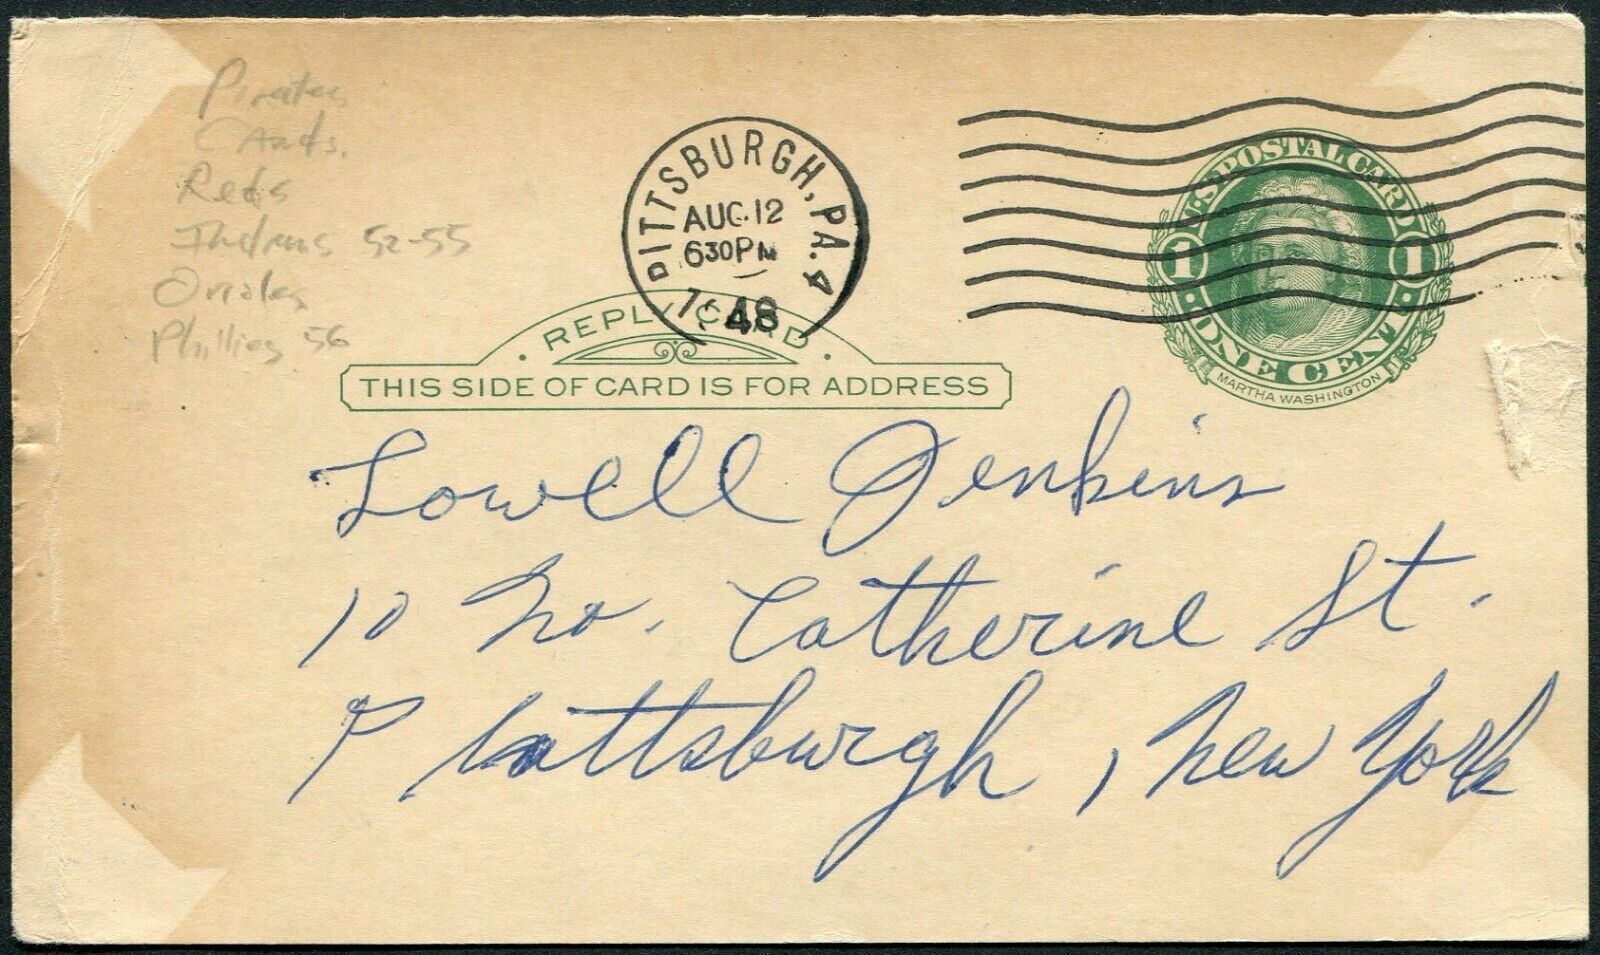 Pirates
Cards.
Reds
Indians 52-55
Orioles
Phillies 56
PITTSBURGH, PA. 4
AUG 12
630 PM
1948
U.S. POSTAL CARD
1 1
ONE CENT
MARTHA WASHINGTON
REPLY CARD
THIS SIDE OF CARD IS FOR ADDRESS
Lowell Jenkins
10 No. Catherine St.
Plattsburgh, New York